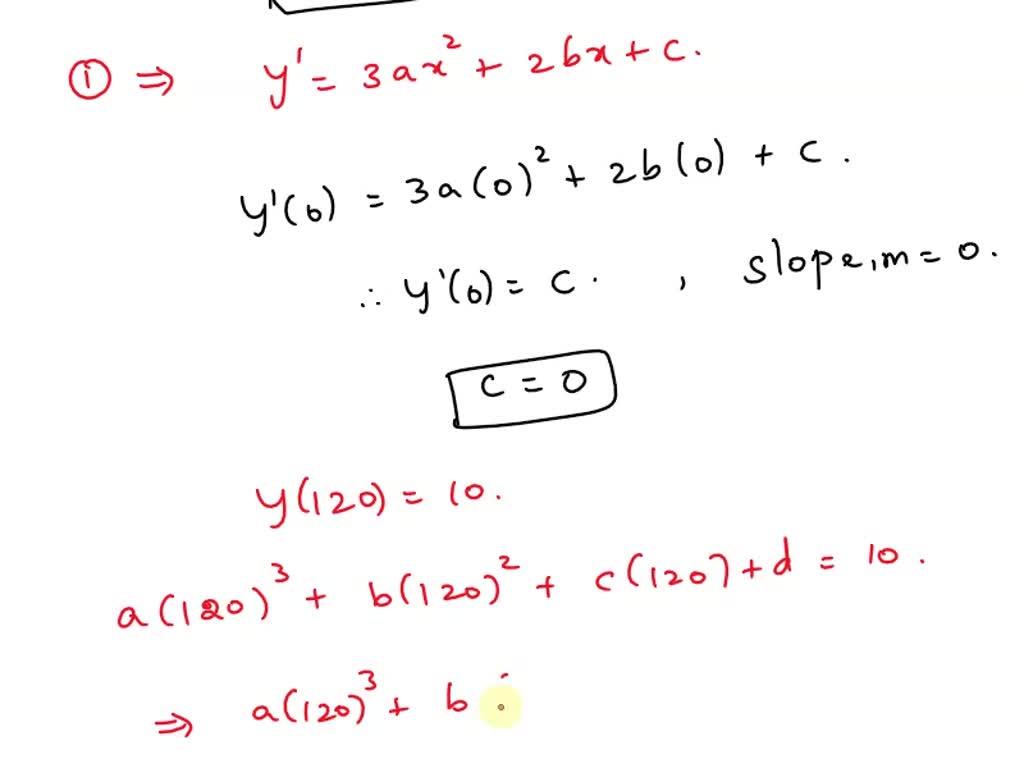 ① ⇒ y' = 3ax² + 2bx + c.
y'(0) = 3a(0)² + 2b(0) + c.
∴ y'(0) = c. , slope, m = 0.
c = 0
y(120) = 10.
a(120)³ + b(120)² + c(120) + d = 10.
⇒ a(120)³ + b